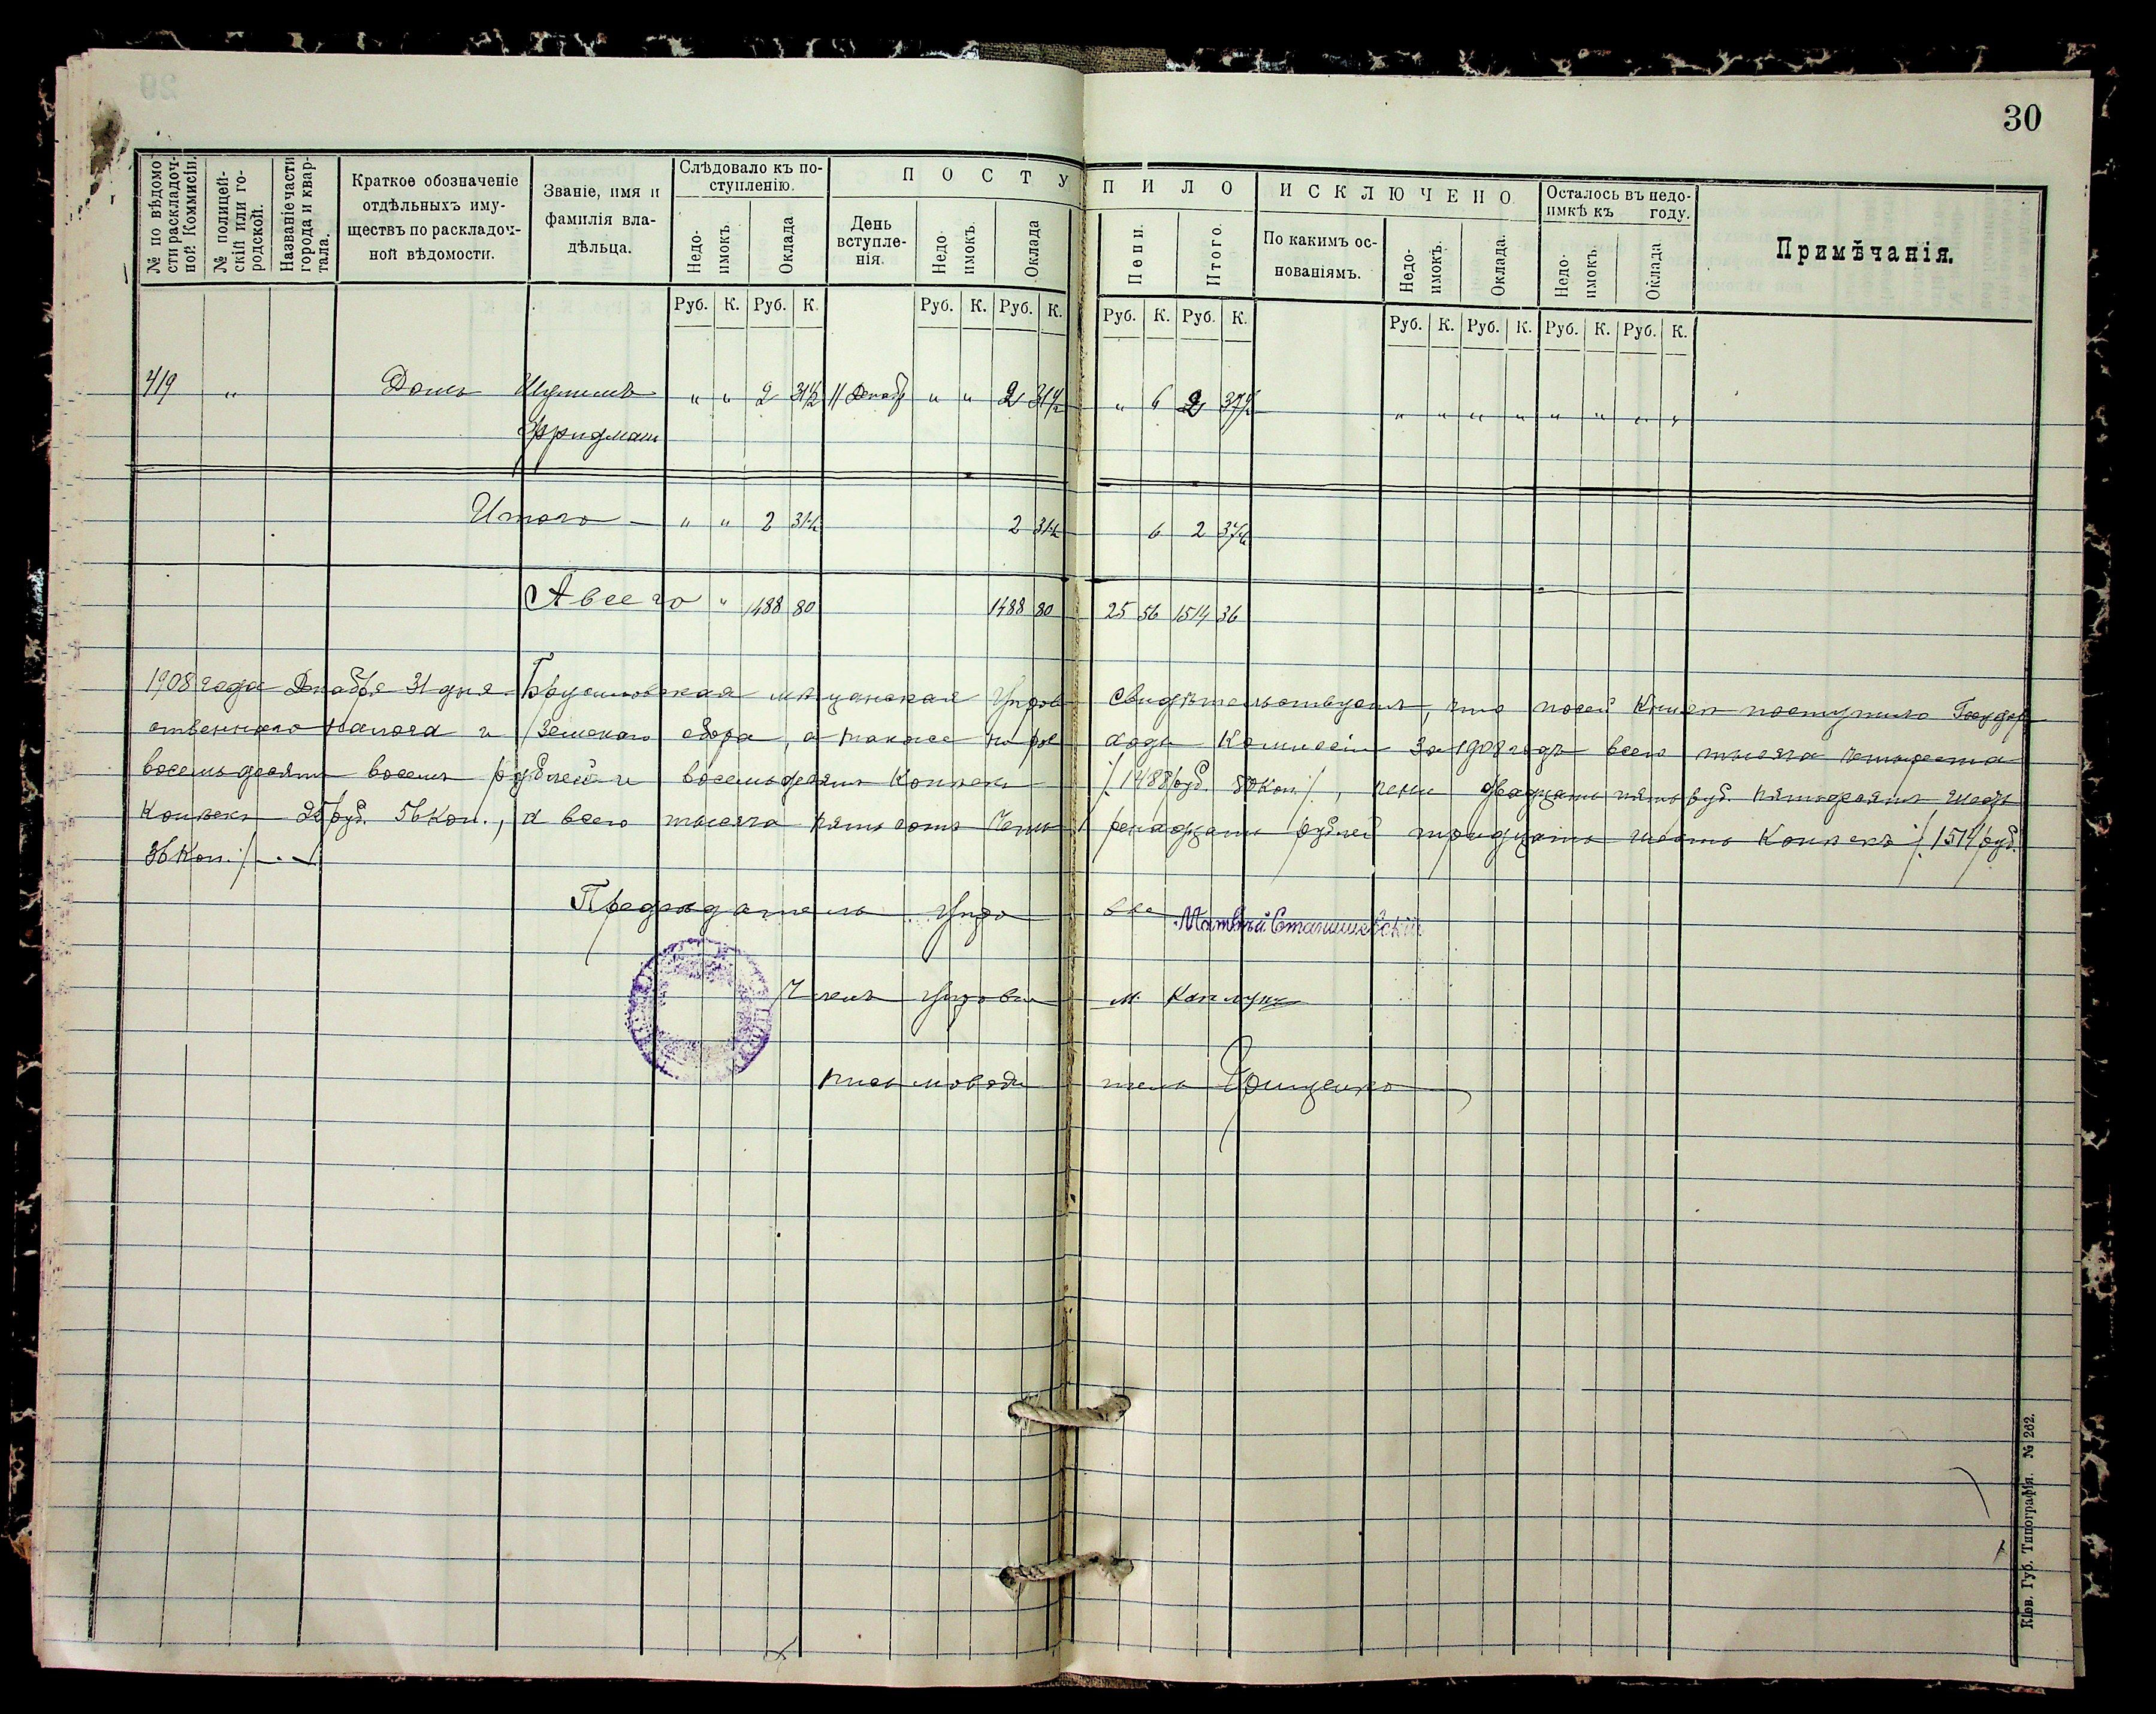 30
№ по вѣдомости раскладочной Коммисіи.
№ полицейскій или городской.
Названіе части города и квартала.
Краткое обозначеніе отдѣльныхъ имуществъ по раскладочной вѣдомости.
Званіе, имя и фамилія владѣльца.
Слѣдовало къ поступленію.
Недоимокъ.
Оклада
П О С Т У П И Л О
День вступленія.
Недоимокъ.
Оклада
Пени.
Итого.
И С К Л Ю Ч Е Н О
По какимъ основаніямъ.
Недоимокъ.
Оклада.
Осталось въ недоимкѣ къ году.
Недоимокъ.
Оклада
Примѣчанія.
Руб. К. Руб. К. Руб. К. Руб. К. Руб. К. Руб. К. Руб. К. Руб. К. Руб. К. Руб. К.
419 " Домъ " " 2 31½ 11 Декабр " " 2 31½ " 6 2 37½ " " " " " " " "
Фридман
Итого — " " 2 31½ 2 31½ 6 2 37½
А всего " 1488 80 1488 80 25 56 1514 36
1908 года Декабря 31 дня Брусиловская мѣщанская Управа свидѣтельствуетъ, что по сей Книгѣ поступило Государ
ственнаго налога и Земскаго сбора, а также на рас ходы Комиссіи за 1908 годъ всего тысяча четыреста
восемьдесятъ восемь рублей и восемьдесятъ Копѣекъ /1488 руб. 80 коп./, пени двадцать пять руб. пятьдесятъ шесть
Копѣекъ 25 руб. 56 коп., а всего тысяча пятьсотъ Четы рнадцать рублей тридцать шесть Копѣекъ /1514 руб.
36 Коп./
Предсѣдатель Упра вы Матвѣй Станишевскій
Членъ Управы М. Каплунъ
Письмоводи тель Грищенко
Кіев. Губ. Типографія. № 262.